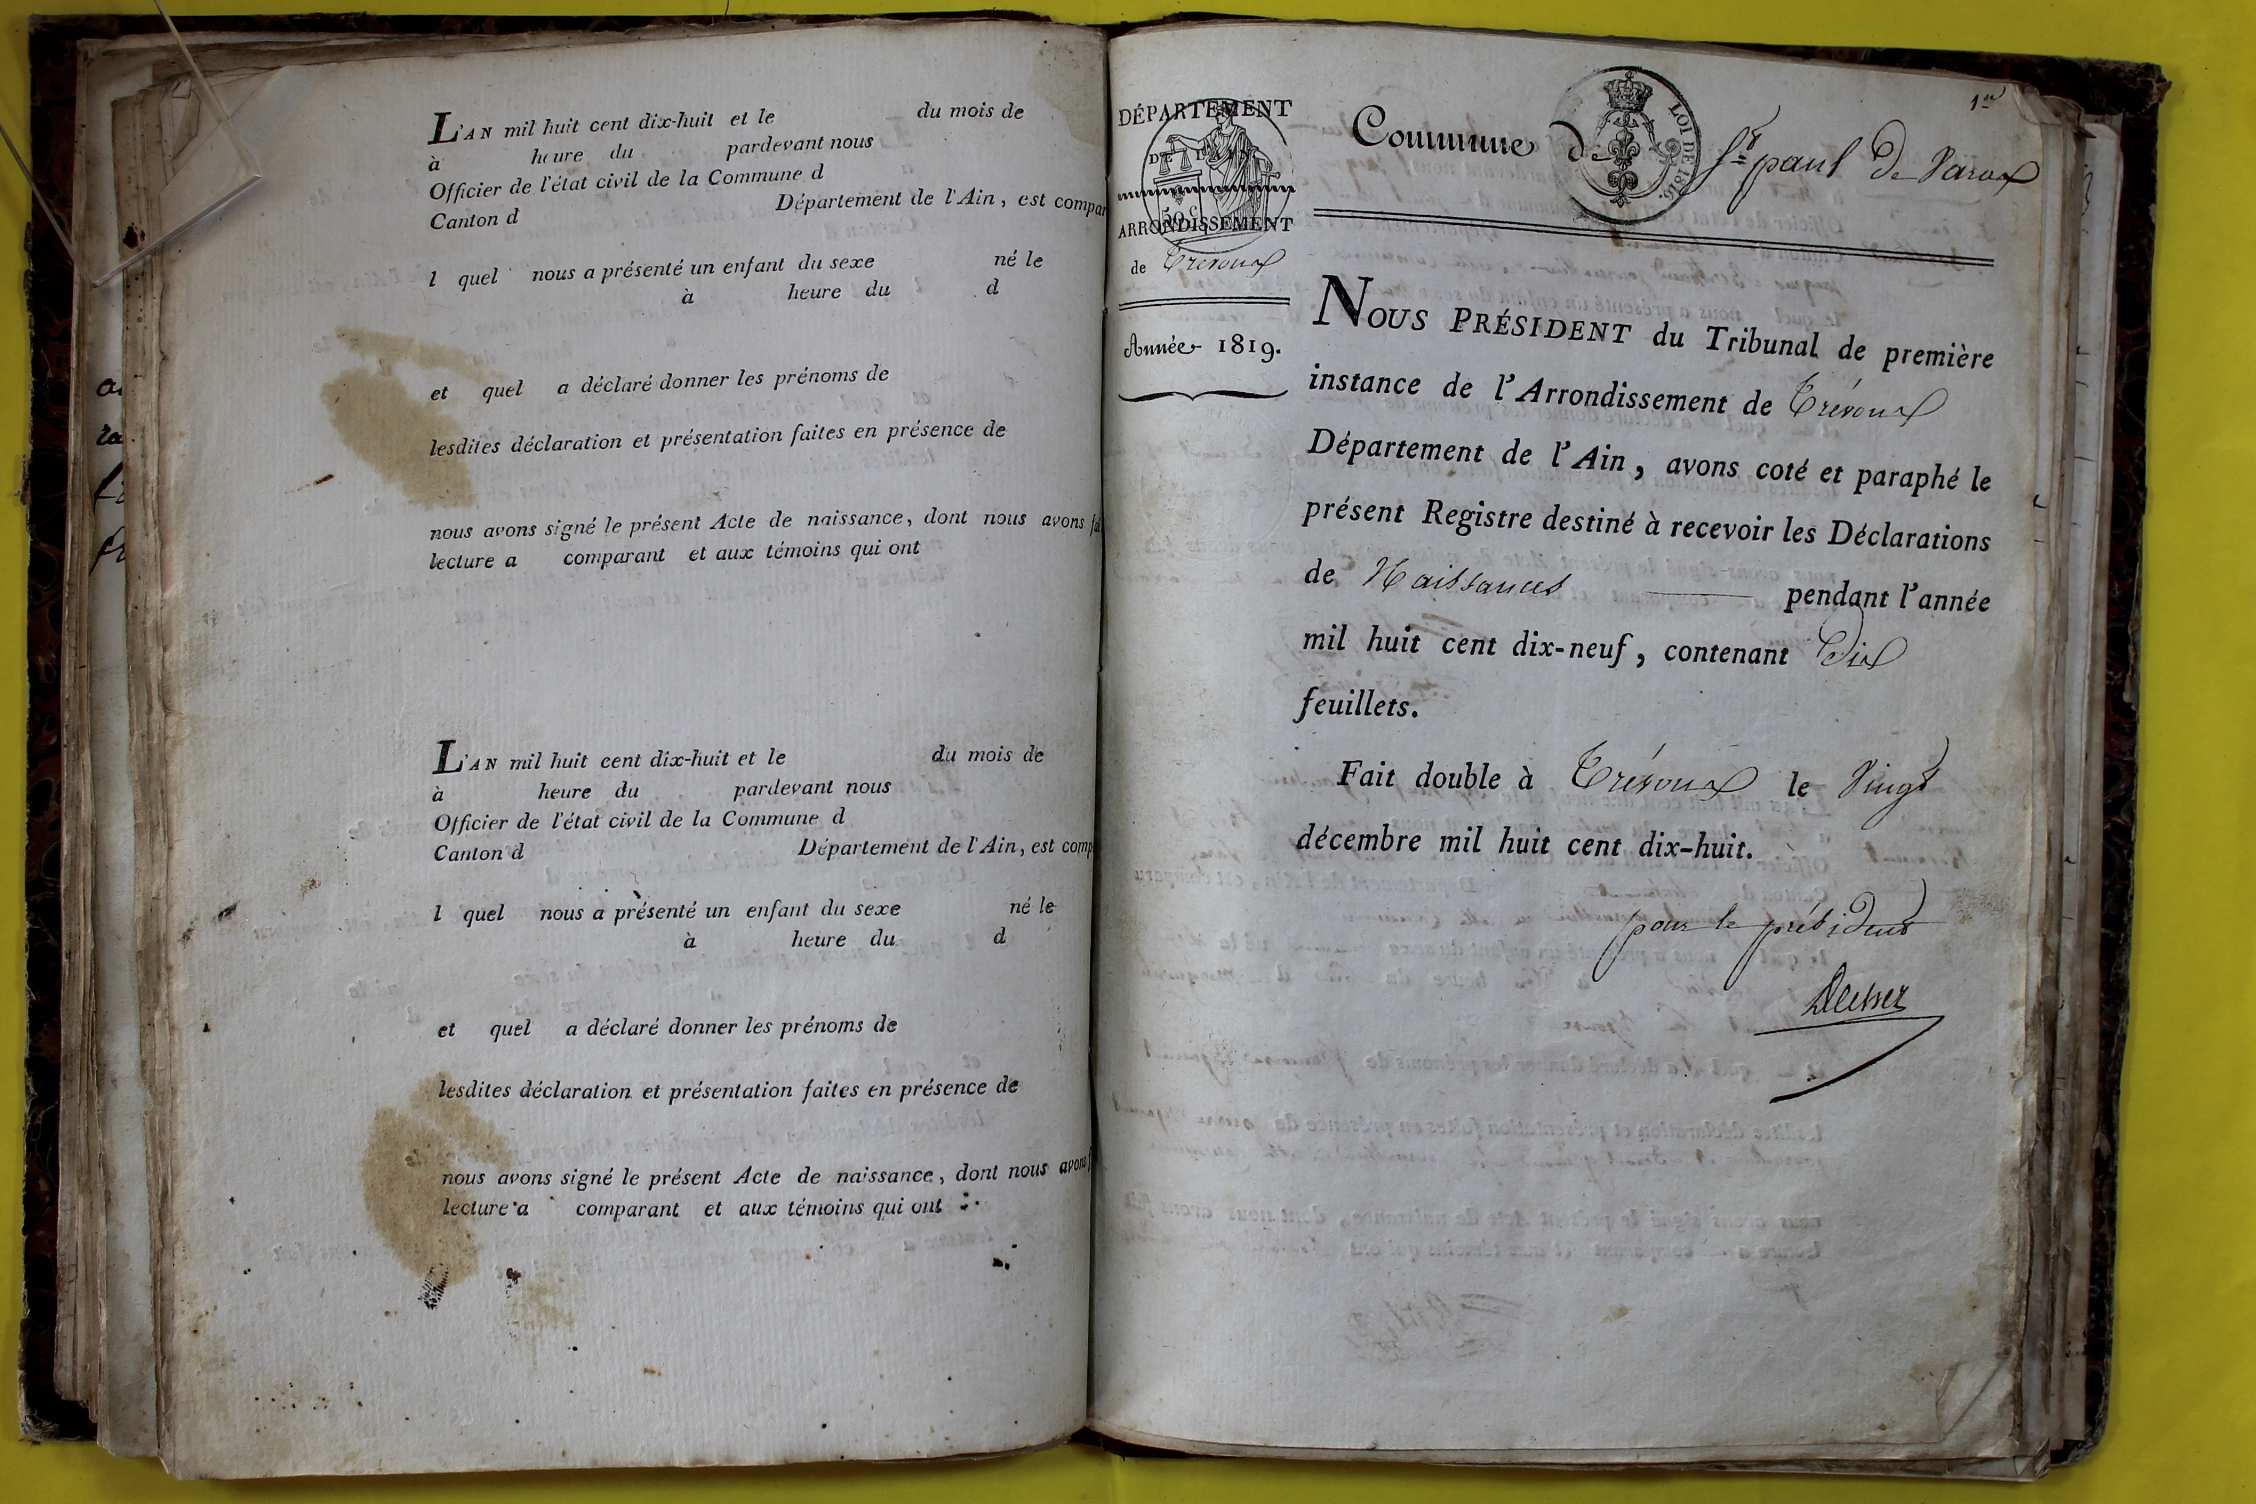 L'AN mil huit cent dix-huit et le du mois de
à heure du pardevant nous
Officier de l'état civil de la Commune d
Canton d Département de l'Ain, est compar
l quel nous a présenté un enfant du sexe né le
à heure du d
et quel a déclaré donner les prénoms de
lesdites déclaration et présentation faites en présence de
nous avons signé le présent Acte de naissance, dont nous avons fai
lecture a comparant et aux témoins qui ont
L'AN mil huit cent dix-huit et le du mois de
à heure du pardevant nous
Officier de l'état civil de la Commune d
Canton d Département de l'Ain, est comp
l quel nous a présenté un enfant du sexe né le
à heure du d
et quel a déclaré donner les prénoms de
lesdites déclaration et présentation faites en présence de
nous avons signé le présent Acte de naissance, dont nous avons f
lecture a comparant et aux témoins qui ont
DÉPARTEMENT
DE L'AIN
50 c
ARRONDISSEMENT
de Trévoux
Année 1819.
1er
Commune de St paul De Varax
LOI DE 1816.
NOUS PRÉSIDENT du Tribunal de première
instance de l'Arrondissement de Trévoux
Département de l'Ain, avons coté et paraphé le
présent Registre destiné à recevoir les Déclarations
de Naissances pendant l'année
mil huit cent dix-neuf, contenant Dix
feuillets.
Fait double à Trévoux le Vingt
décembre mil huit cent dix-huit.
pour le président